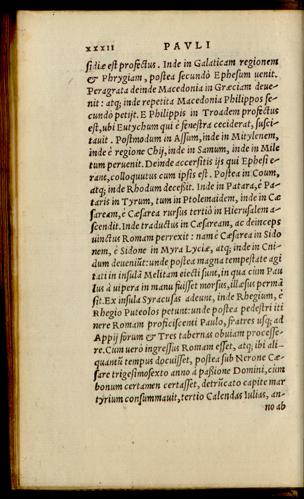 XXXII PAVLI
sidiæ est profectus. Inde in Galaticam regionem
& Phrygiam, postea secundò Ephesum uenit.
Peragrata deinde Macedonia in Græciam deue-
nit: atq; inde repetita Macedonia Philippos se-
cundò petijt. E Philippis in Troadem profectus
est, ubi Eutychum qui è fenestra ceciderat, susci-
tauit. Postmodum in Assum, inde in Mitylenem,
inde è regione Chij, inde in Samum, inde in Mile
tum peruenit. Deinde accersitis ijs qui Ephesi e-
rant, colloquutus cum ipsis est. Postea in Coum,
atq; inde Rhodum decessit. Inde in Patara, è Pa-
taris in Tyrum, tum in Ptolemaidem, inde in Cæ
saream, è Cæsarea rursus tertiò in Hierusalem a-
scendit. Inde traductus in Cæsaream, ac deinceps
uinctus Romam perrexit: nam è Cæsarea in Sido
nem, è Sidone in Myra Lyciæ, atq; inde in Cni-
dum deueniūt: unde postea magna tempestate agi
tati in insulā Melitam eiecti sunt, in qua cùm Pau
lus à uipera in manu fuisset morsus, illæsus permā
sit. Ex insula Syracusas adeunt, inde Rhegium, è
Rhegio Puteolos petunt: unde postea pedestri iti
nere Romam proficiscenti Paulo, fratres usq; ad
Appij forum & Tres tabernas obuiam processe-
re. Cum uerò ingressus Romam esset, atq; ibi ali-
quantū tempus docuisset, postea sub Nerone Cæ-
sare trigesimosexto anno à passione Domini, cùm
bonum certamen certasset, detrūcato capite mar
tyrium consummauit, tertio Calendas Iulias, an-
no ab